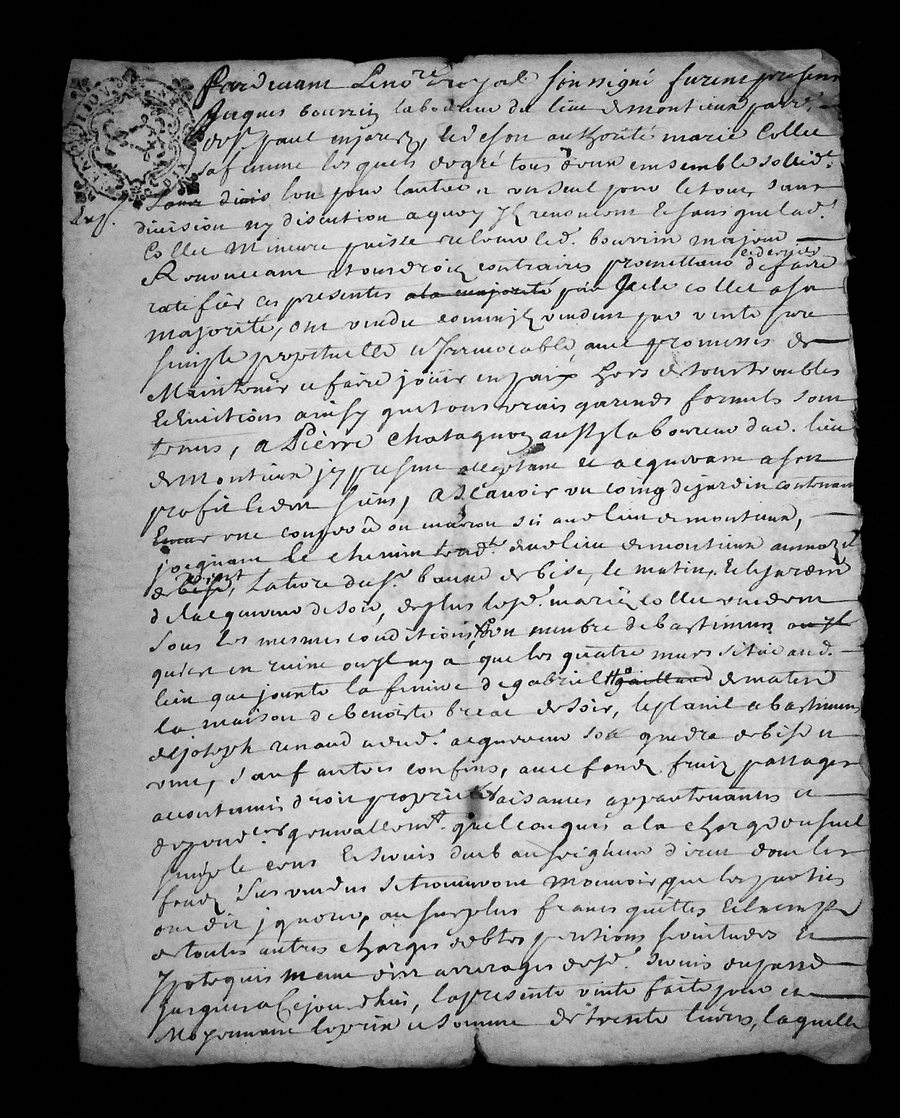 Pardevant Le no.re royal soussigné furent presens
Jacques bourrin laboureur du lieu de montieux parr.e
de st paul en jarez, et de son authorité marie Collet
sa femme lesquels de gré tous deux ensemble sollid.t
l'un pour l'autre un seul pour le tout, sans
division ny discution a quoy ils renoncent et sans que lad.e
Collet Mineure puisse led. bourrin majeur
Renoncent a tous droits contraires promettant led bourrin de faire
ratiffier ces presentes a la majorité par lade collet a sa
majorité, ont vendu comme ils vendent par vente pure
simple perpetuelle et irrevocable avec promesses de
Maintenir et faire jouir en paix hors de tous troubles
et evictions ainsy que tous vrais garends formels sont
tenus, a Pierre Chataignon aussy laboureur dud. lieu
de montieux jcy present acceptant et acquerant a son
profit et des siens, a scavoir un coing de jardin contenant
une couppée ou environ sis aud lieu de montieux,
joignant le chemin tend.t dud lieu de montieux
de vent, la terre du sr. de bise, le matin, et le jardin
de l'acquereur de soir, de plus lesd. mariez collet vendent
sous les mesmes conditions un membre de bastiment
qui est en ruine ou jl ny a que les quatre murs situé aud.
lieu que jouxte la feniere de gabriel gaillard de matin
la maison de benoiste de soir, le plastre et bastiment
de joseph renaud dud. acquereur de bise et
vent, sauf autres confins, avec fonds fruits passages
accoutumés droits proprietés aisances appartenances et
dependences generallem.t quelconques a la charge
simple cens et servis deub au seigneur direct dont les
fonds sus vendus se trouveront mouvoir, que les parties
ont dit jgnorer, au surplus francs quittes et exempts
de toutes autres charges debtes pentions servitudes et
ypoteques meme des arrerages desd. servis du passé
jusques a ce jourd'hui, la presente vente faitte pour et
Moyennant le prix et somme de trente livres, laquelle